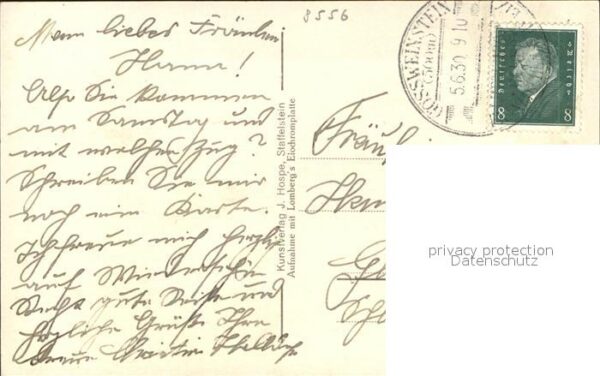 8556
Mein liebes Fräulein
Hanna!
Also Sie kommen
am Samstag und
mit welchem Zug?
Schreiben Sie mir
noch eine Karte.
Ich freue mich herzlich
auf Wiedersehen
Recht gute Reise und
herzliche Grüße Ihre
Kunstverlag J. Hospe, Staffelstein
Aufnahme mit Lomberg's Eisochromplatte
GÖSSWEINSTEIN
(500m)
5.6.30. 9-10
Deutsches Reich
8 8
Fräul
privacy protection
Datenschutz